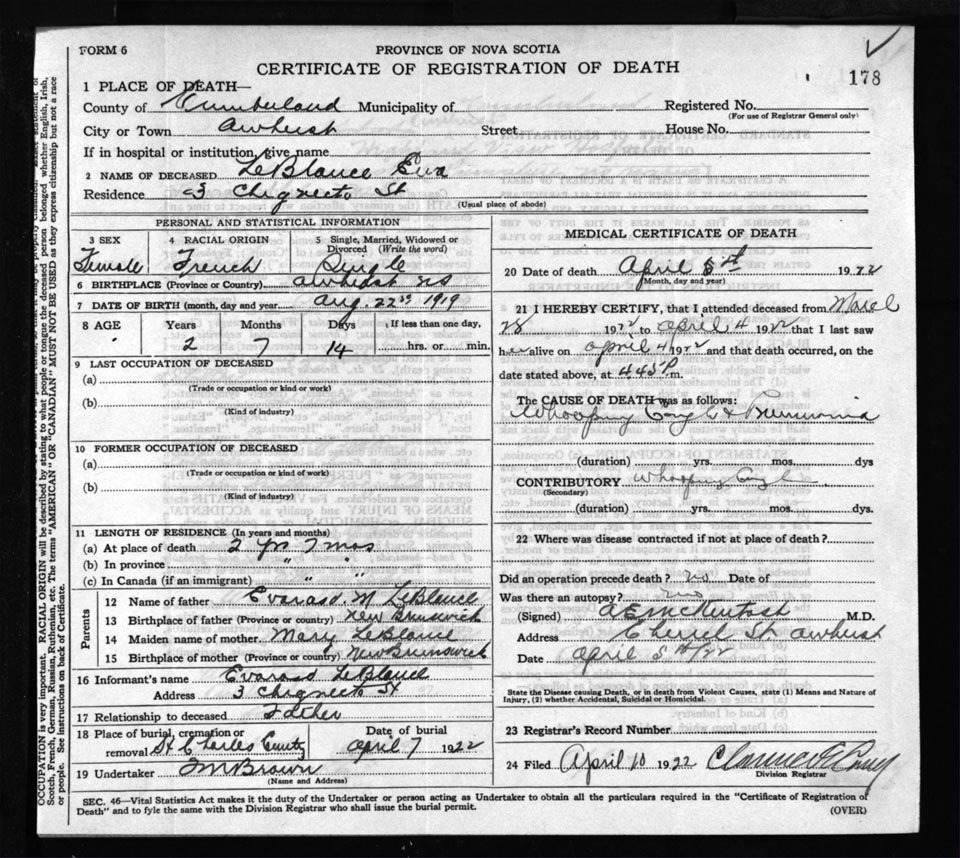 FORM 6
PROVINCE OF NOVA SCOTIA
CERTIFICATE OF REGISTRATION OF DEATH
178
1 PLACE OF DEATH—
County of Cumberland Municipality of Registered No.
(For use of Registrar General only)
City or Town Amherst Street House No.
If in hospital or institution, give name
2 NAME OF DECEASED LeBlanc Eva
Residence 3 Chignecto St
(Usual place of abode)
PERSONAL AND STATISTICAL INFORMATION
3 SEX 4 RACIAL ORIGIN 5 Single, Married, Widowed or Divorced (Write the word)
Female French Single
6 BIRTHPLACE (Province or Country) Amherst NS
7 DATE OF BIRTH (month, day and year Aug. 22nd 1919
8 AGE Years Months Days If less than one day,
2 7 14 hrs. or min.
9 LAST OCCUPATION OF DECEASED
(a)
(Trade or occupation or kind or work)
(b)
(Kind of industry)
10 FORMER OCCUPATION OF DECEASED
(a)
(Trade or occupation or kind of work)
(b)
(Kind of Industry)
11 LENGTH OF RESIDENCE (In years and months)
(a) At place of death 2 yrs 7 mos
(b) In province " "
(c) In Canada (if an immigrant) " "
Parents
12 Name of father M LeBlanc
13 Birthplace of father (Province or country) New Brunswick
14 Maiden name of mother Mary LeBlanc
15 Birthplace of mother (Province or country) New Brunswick
16 Informant's name LeBlanc
Address 3 Chignecto St
17 Relationship to deceased Father
18 Place of burial, cremation or removal St Charles Date of burial April 7 1922
19 Undertaker Brown
(Name and Address)
MEDICAL CERTIFICATE OF DEATH
20 Date of death April 5th 1922
(Month, day and year)
21 I HEREBY CERTIFY, that I attended deceased from March
28 1922 to April 4 1922 that I last saw
her alive on April 4 1922 and that death occurred, on the
date stated above, at 4.45 P m.
The CAUSE OF DEATH was as follows:
Whooping Cough & Pneumonia
(duration) yrs. mos. dys
CONTRIBUTORY Whooping Cough
(Secondary)
(duration) yrs. mos. dys.
22 Where was disease contracted if not at place of death?
Did an operation precede death? no Date of
Was there an autopsy? no
(Signed) M.D.
Address Church St Amherst
Date April 5th/22
State the Disease causing Death, or in death from Violent Causes, state (1) Means and Nature of
Injury, (2) whether Accidental, Suicidal or Homicidal.
23 Registrar's Record Number
24 Filed April 10 1922
Division Registrar
SEC. 46—Vital Statistics Act makes it the duty of the Undertaker or person acting as Undertaker to obtain all the particulars required in the "Certificate of Registration of
Death" and to fyle the same with the Division Registrar who shall issue the burial permit.
(OVER)
OCCUPATION is very important. RACIAL ORIGIN will be described by stating to what people or tongue the deceased person belonged whether English, Irish,
Scotch, French, German, Russian, Ruthenian, etc. The terms "AMERICAN" OR "CANADIAN" MUST NOT BE USED as they express citizenship but not a race
or people. See instructions on back of Certificate.